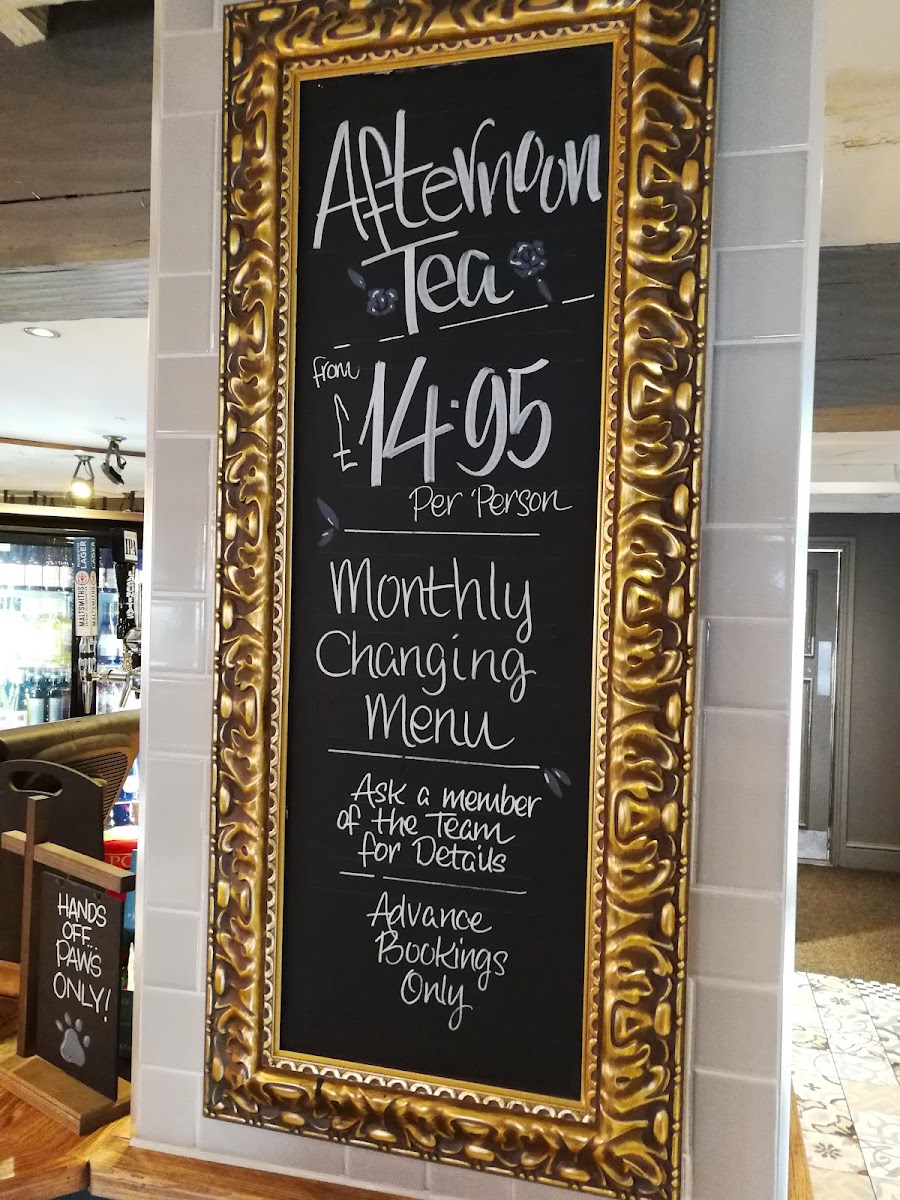 Afternoon
Tea
from
£14.95
Per Person
Monthly
Changing
Menu
Ask a member
of the Team
for Details
Advance
Bookings
Only
HANDS
OFF...
PAWS
ONLY!
MALTSMITHS
LAGER
IPA